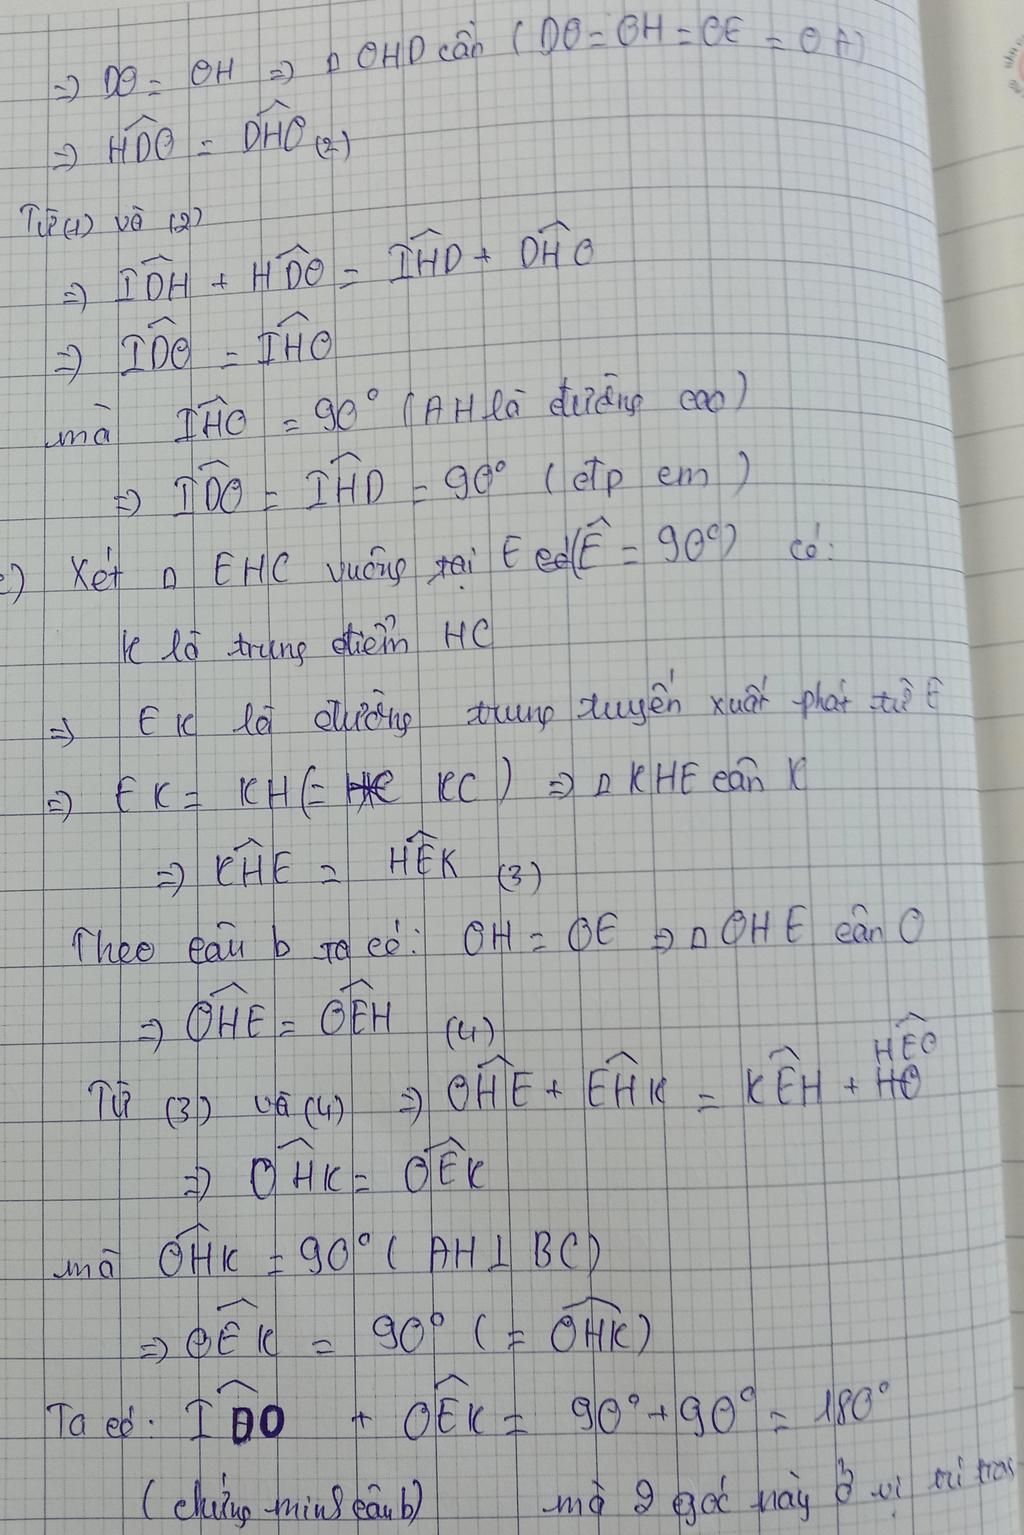 ⇒ DO = OH ⇒ Δ OHD cân (DO = OH = OE = OA)
⇒ HDO = DHO (2)
Từ (1) và (2)
⇒ IDH + HDO = IHD + DHO
⇒ IDO = IHO
mà IHO = 90° (AH là đường cao)
⇒ IDO = IHD = 90° (đtp cm)
c) Xét Δ EHC vuông tại E (Ê = 90°) có:
K là trung điểm HC
⇒ EK là đường trung tuyến xuất phát từ E
⇒ EK = KH (= KC) ⇒ Δ KHE cân K
⇒ KHE = HEK (3)
Theo câu b ta có: OH = OE ⇒ Δ OHE cân O
⇒ OHE = OEH (4)
HEO
Từ (3) và (4) ⇒ OHE + EHK = KEH + HO
⇒ OHK = OEK
mà OHK = 90° (AH ⊥ BC)
⇒ OEK = 90° (= OHK)
Ta có: IDO + OEK = 90° + 90° = 180°
(chứng minh câu b) mà 2 góc này ở vị trí tron